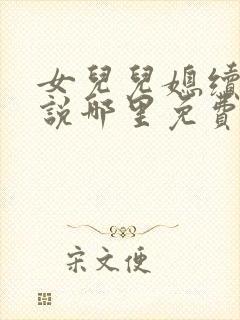 女兒兒媳續
説哪里免費
宋文便